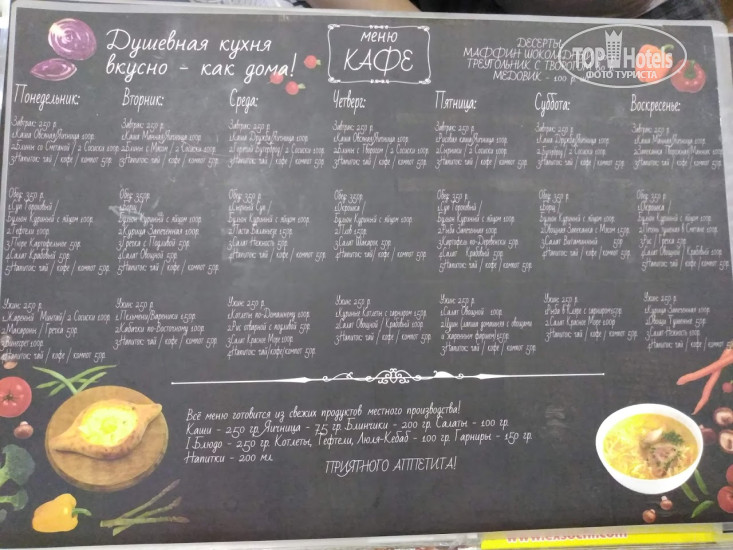 Душевная кухня
вкусно - как дома!
меню
КАФЕ
ДЕСЕРТЫ
МАФФИН ШОКОЛАД
ТРЕУГОЛЬНИК С ТВОРОГ
МЕДОВИК - 100 р
TOP Hotels
ФОТО ТУРИСТА
Понедельник:
Завтрак: 250 р.
1.Каша Овсяная/Яичница 100р.
2.Блины со Сметаной / 2 Сосиски 100р.
3.Напиток: чай / кофе / компот 50р.
Обед: 350 р.
1.Суп Гороховый /
Бульон Куриный с яйцом 100р.
2.Тефтели 100р.
3.Пюре Картофельное 50р.
4.Салат Крабовый 50р.
5.Напиток: чай / кофе / компот 50р.
Ужин: 250 р.
1.Жареный Минтай/ 2 Сосиски 100р.
2.Макароны / Греча 50р.
3.Винегрет 100р.
4.Напиток: чай / кофе / компот 50р.
Вторник:
Завтрак: 250 р.
1.Каша Манная/Яичница 100р.
2.Блины с Мясом / 2 Сосиски 100р.
3.Напиток: чай / кофе / компот 50р.
Обед: 350р.
1.Борщ /
Бульон Куриный с яйцом 100р.
2.Курица Запеченная 100р.
3.Гречка с Подливой 50р.
4.Салат Овощной 50р.
5.Напиток: чай / кофе / компот 50р.
Ужин: 250 р.
1.Пельмени/Вареники 150р.
2.Кабачки по-Восточному 100р.
3.Напиток: чай / кофе / компот 50р.
Среда:
Завтрак: 250 р.
1.Каша Дружба/Яичница 100р.
2.Горячий Бутерброд / 2 Сосиски 100р.
3.Напиток: чай / кофе / компот 50р.
Обед: 350 р.
1.Сырный Суп /
Бульон Куриный с яйцом 100р.
2.Паста Болоньезе 150р.
3.Салат Нежность 50р.
4.Напиток: чай / кофе / компот 50р.
Ужин: 250 р.
1.Котлеты по-Домашнему 100р.
2.Рис отварной с подливой 50р.
3.Салат Красное Море 100р.
4.Напиток: чай/кофе/компот 50р.
Четверг:
Завтрак: 250 р.
1.Каша Овсяная/Яичница 100р.
2.Блины с Творогом / 2 Сосиски 100р.
3.Напиток: чай / кофе / компот 50р.
Обед: 350 р.
1.Окрошка /
Бульон Куриный с яйцом 100р.
2.Плов 150р.
3.Салат Шиларок 50р.
4.Напиток: чай / кофе / компот 50р.
Ужин: 250 р.
1.Куриные Котлеты с гарниром 150р.
2.Салат Овощной / Крабовый 100р.
3.Напиток: чай / кофе / компот 50р.
Пятница:
Завтрак: 250 р.
1.Рисовая каша/Яичница 100р.
2.Сырники / 2 Сосиски 100р.
3.Напиток: чай / кофе / компот 50р.
Обед: 350 р.
1.Суп Гороховый /
Бульон Куриный с яйцом 100р.
2.Рыба Запеченная 100р.
3.Картофель по-Деревенски 50р.
4.Салат Крабовый 50р.
5.Напиток: чай / кофе / компот 50р.
Ужин: 250 р.
1.Салат Овощной 100р.
3.Напиток: чай / кофе / компот 50р.
Суббота:
Завтрак: 250 р.
1.Каша Дружба/Яичница 100р.
2.Бутерброд / 2 Сосиски 100р.
3.Напиток: чай / кофе / компот 50р.
Обед: 350 р.
1.Борщ /
Бульон Куриный с яйцом 100р.
2.Овощная Запеканка с Мясом 150р.
3.Салат Витаминный 50р.
4.Напиток: чай / кофе / компот 50р.
Ужин: 250 р.
1.Рыба в Кляре с гарниром 150р.
2.Салат Красное Море 100р.
3.Напиток: чай / кофе / компот 50р.
Воскресенье:
Завтрак: 250 р.
1.Каша Манная/Яичница 100р.
2.Запеканка Творожная/Манник 100р.
3.Напиток: чай / кофе / компот 50р.
Обед: 350 р.
1.Окрошка /
Бульон Куриный с яйцом 100р.
2.Печень тушеная в Сметане 100р.
3.Рис / Гречка 50р.
4.Салат Овощной / Крабовый 50р.
5.Напиток: чай / кофе / компот 50р.
Ужин: 250 р.
1.Курица Запеченная 100р.
2.Овощи Тушеные 50р.
3.Салат Нежность 100р.
4.Напиток: чай / кофе / компот 50р.
Всё меню готовится из свежих продуктов местного производства!
Каши - 250 гр. Яичница - 75 гр. Блинчики - 200 гр. Салаты - 100 гр.
1 Блюдо - 250 гр. Котлеты, Тефтели, Люля-Кебаб - 100 гр. Гарниры - 150 гр.
Напитки - 200 мл.
ПРИЯТНОГО АППЕТИТА!
www.exsochi.com